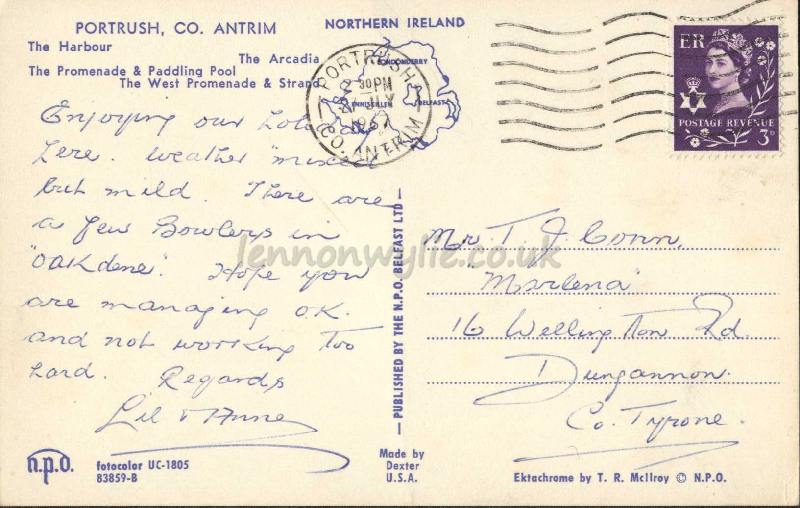 PORTRUSH, CO. ANTRIM
The Harbour
The Arcadia
The Promenade & Paddling Pool
The West Promenade & Strand
NORTHERN IRELAND
LONDONDERRY
ENNISKILLEN
BELFAST
PORTRUSH
30PM
JLY
1967
CO. ANTRIM
ER
POSTAGE REVENUE
3D
Enjoying our
here. Weather "mixed"
but mild. There are
a few Bowlers in
"Oakdene". Hope you
are managing O.K.
and not working too
hard. Regards
Lil & Anne
— PUBLISHED BY THE N.P.O. BELFAST LTD —
Mr. T J Conn,
"Marlena"
16 Wellington Rd.
Dungannon.
Co. Tyrone.
lennonwylie.co.uk
n.p.o.
fotocolor UC-1805
83859-B
Made by
Dexter
U.S.A.
Ektachrome by T. R. McIlroy © N.P.O.